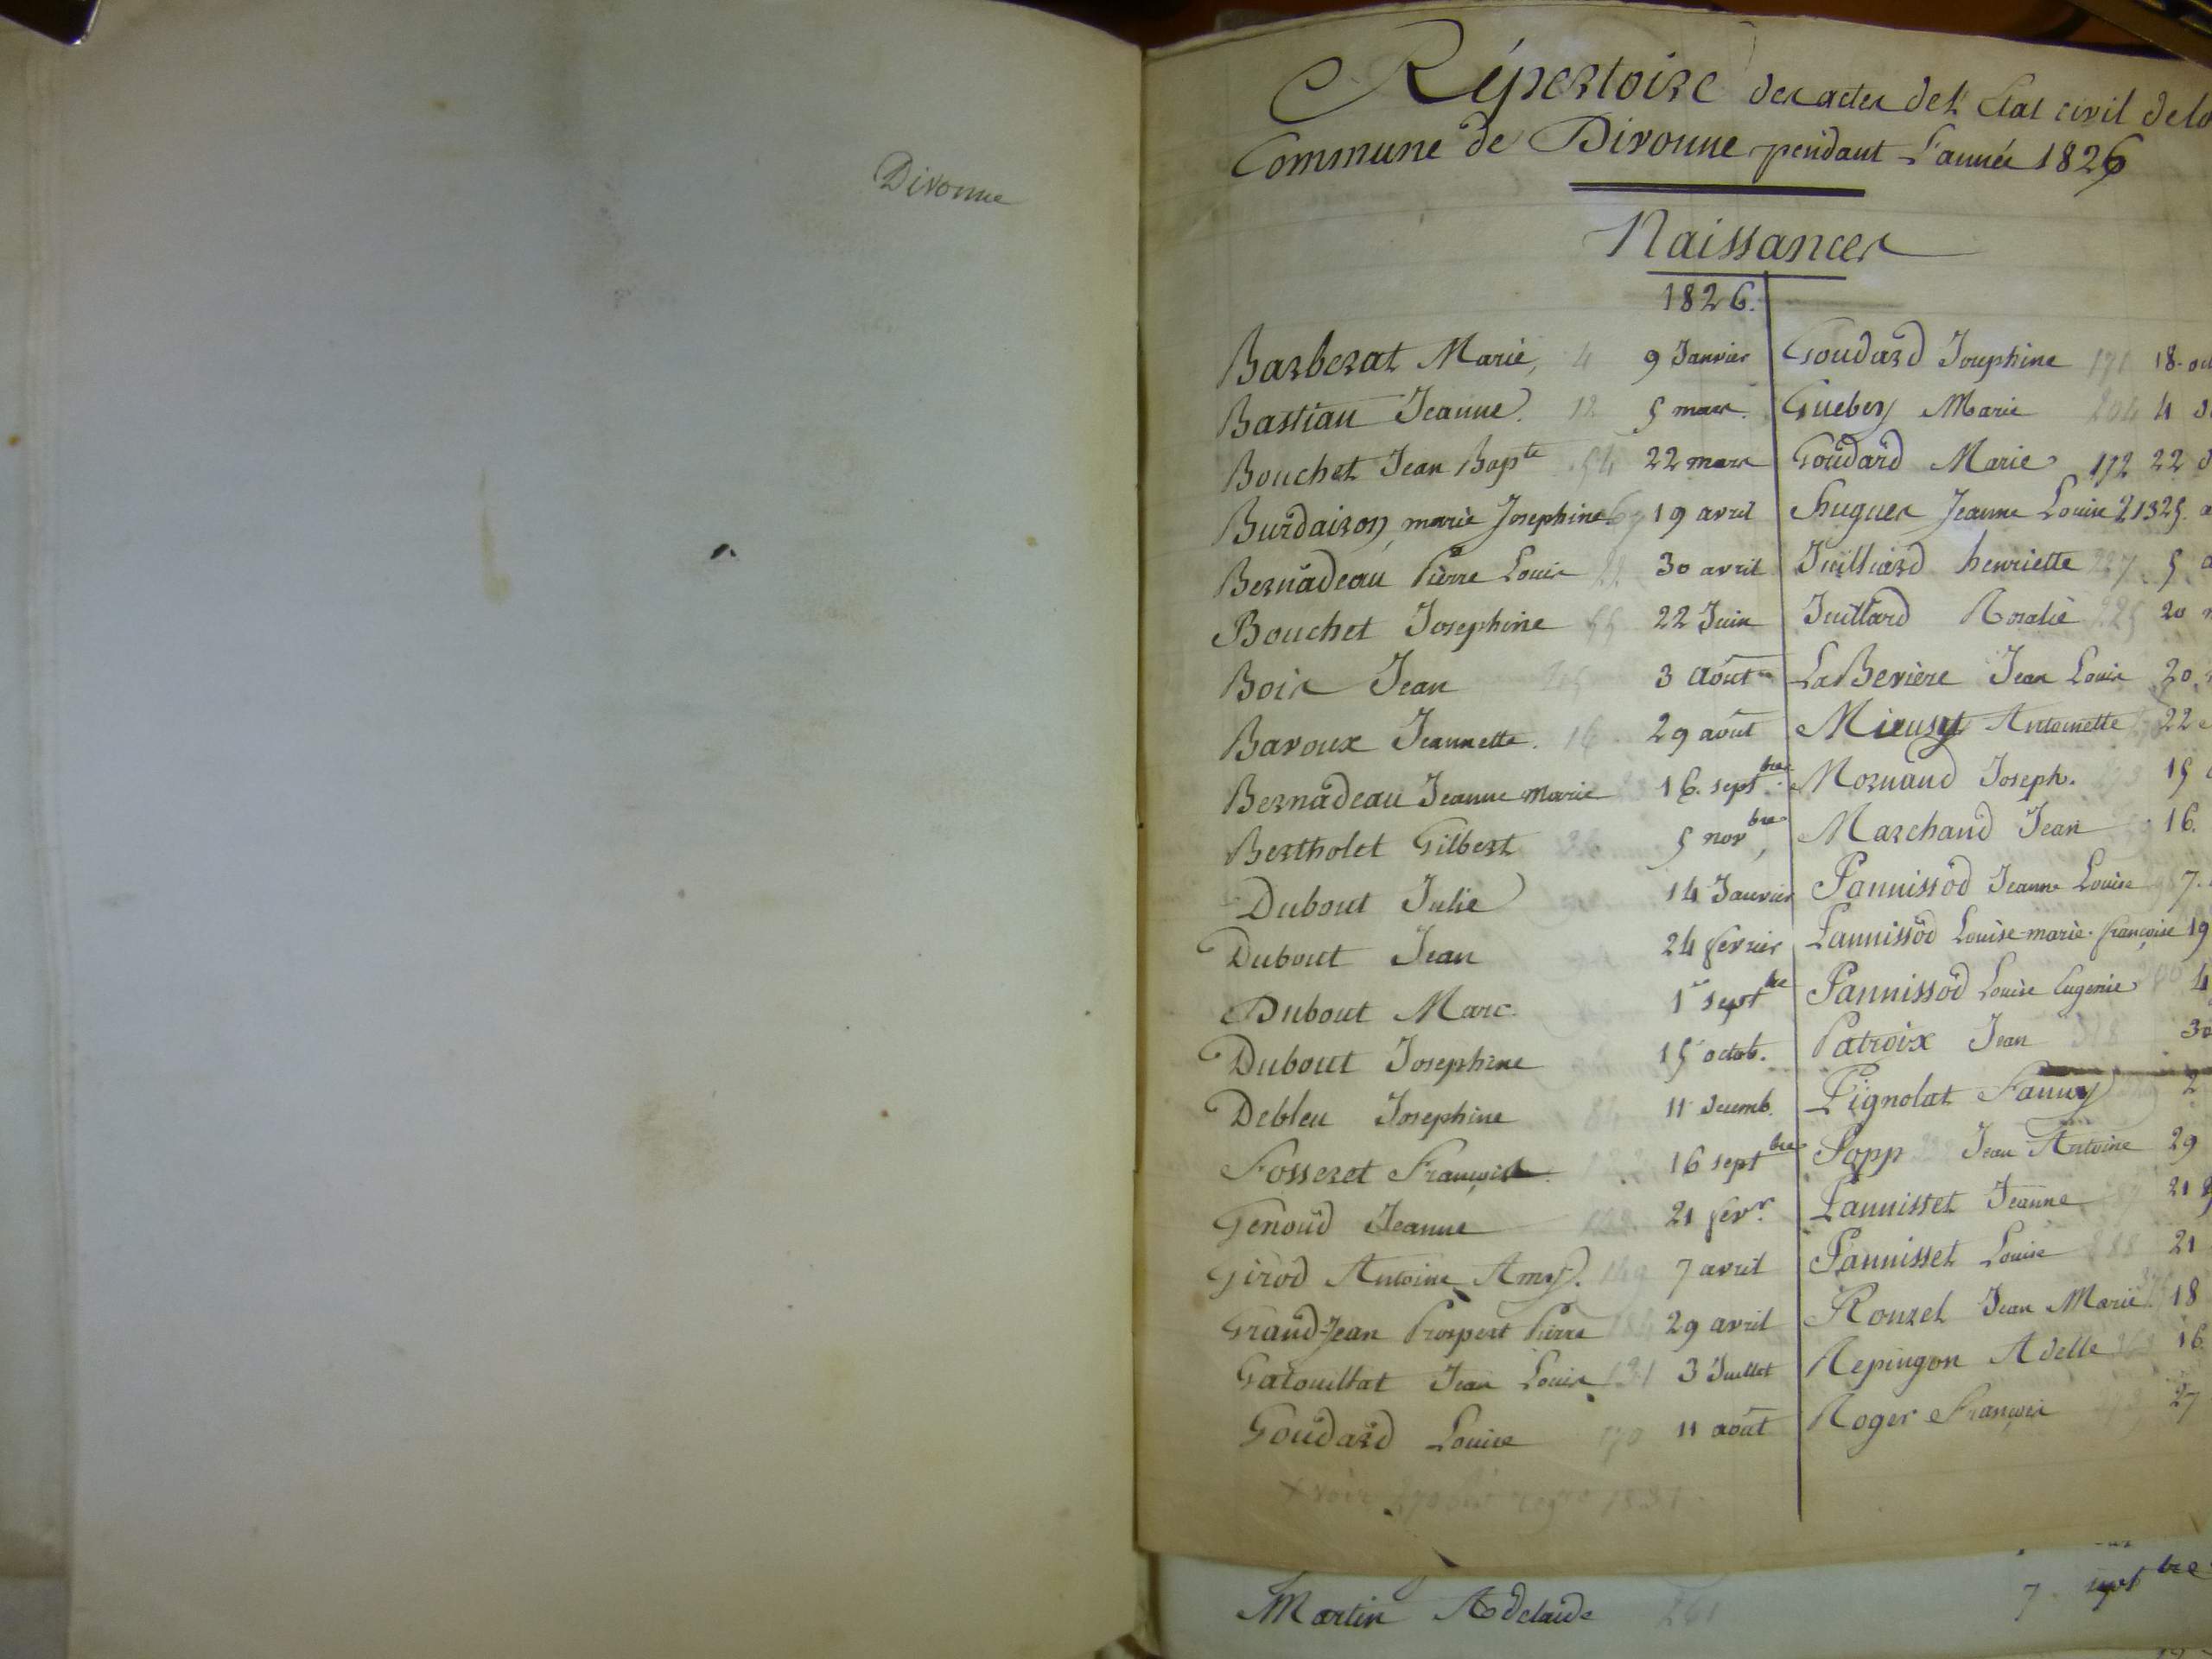 Divonne
Répertoire des actes de l'Etat civil de la
Commune de Divonne pendant L'année 1826
Naissances
1826.
Barberat Marie, 4 9 Janvier
Bastian Jeanne. 12 5 mars.
Bouchet Jean Bapte 54 22 mars
Burdairon, marie Josephine 19 avril
Bernadeau Pierre Louis 30 avril
Bouchet Josephine 55 22 Juin
Bois Jean 3 Août
Baroux Jeannette. 16 29 août
Bernadeau Jeanne marie 16. septbre
Bertholet Gilbert 5 novbre,
Dubout Julie 14 Janvier
Dubout Jean 24 fevrier
Dubout Marc. 1er septbre
Dubout Josephine 15 octob.
Debleu Josephine 84 11 decemb.
Fosseret François 16 septbre
Genoud Jeanne 21 fevr.
Girod Antoine Amy. 149 7 avril
Grand-Jean Prospert Pierre 29 avril
Gatouillat Jean Louis 131 3 Juillet
Goudard Louise 170 11 août
Goudard Josephine 171 18
Guebey Marie 204 4
Goudard Marie 172 22
hugues Jeanne Louise 213 25.
Juilliard henriette 227 5
Juillard Rosalie 225 20
LaBeviere Jean Louis 20
Antoinette 22
Mornaud Joseph. 15
Marchand Jean 16.
Pannissod Jeanne Louise 7.
Pannissod Louise-marie-françoise 19
Pannissod Louise Eugenie 4
Patroix Jean 318 30
Pignolat Fanny 2
Popp Jean Antoine 29
Pannisset Jeanne 21
Pannisset Louise 288 21
Rouzet Jean Marie 18
Repingon Adelle 16
Roger François 27
1831
Martin Adelaide 261 7 septbre